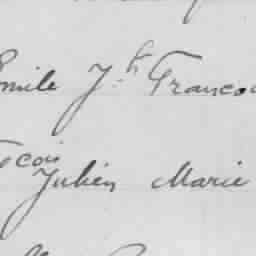 Emile Jh Francois
çois
Julien Marie